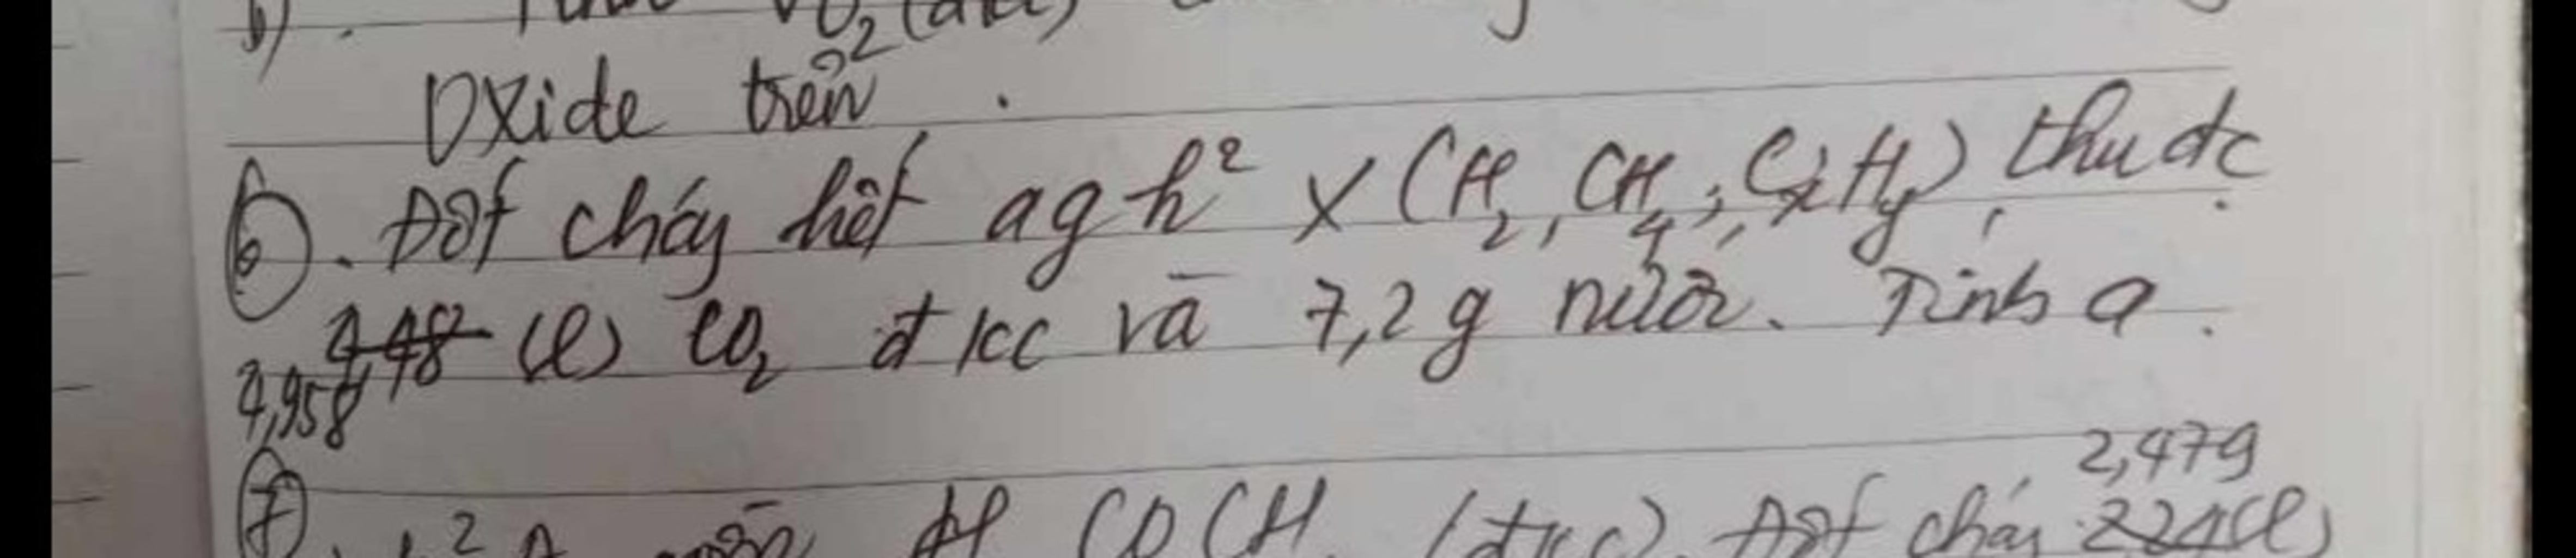 b).
Oxide trên.
6. Đốt cháy hết a g h² X (H₂, CH₄, CxHy) thu đc
4,48 (l) CO₂ đkc và 7,2 g nước. Tính a.
4,958
2,479
7. h² A COCH (đkc). Đốt cháy 2,24(l)